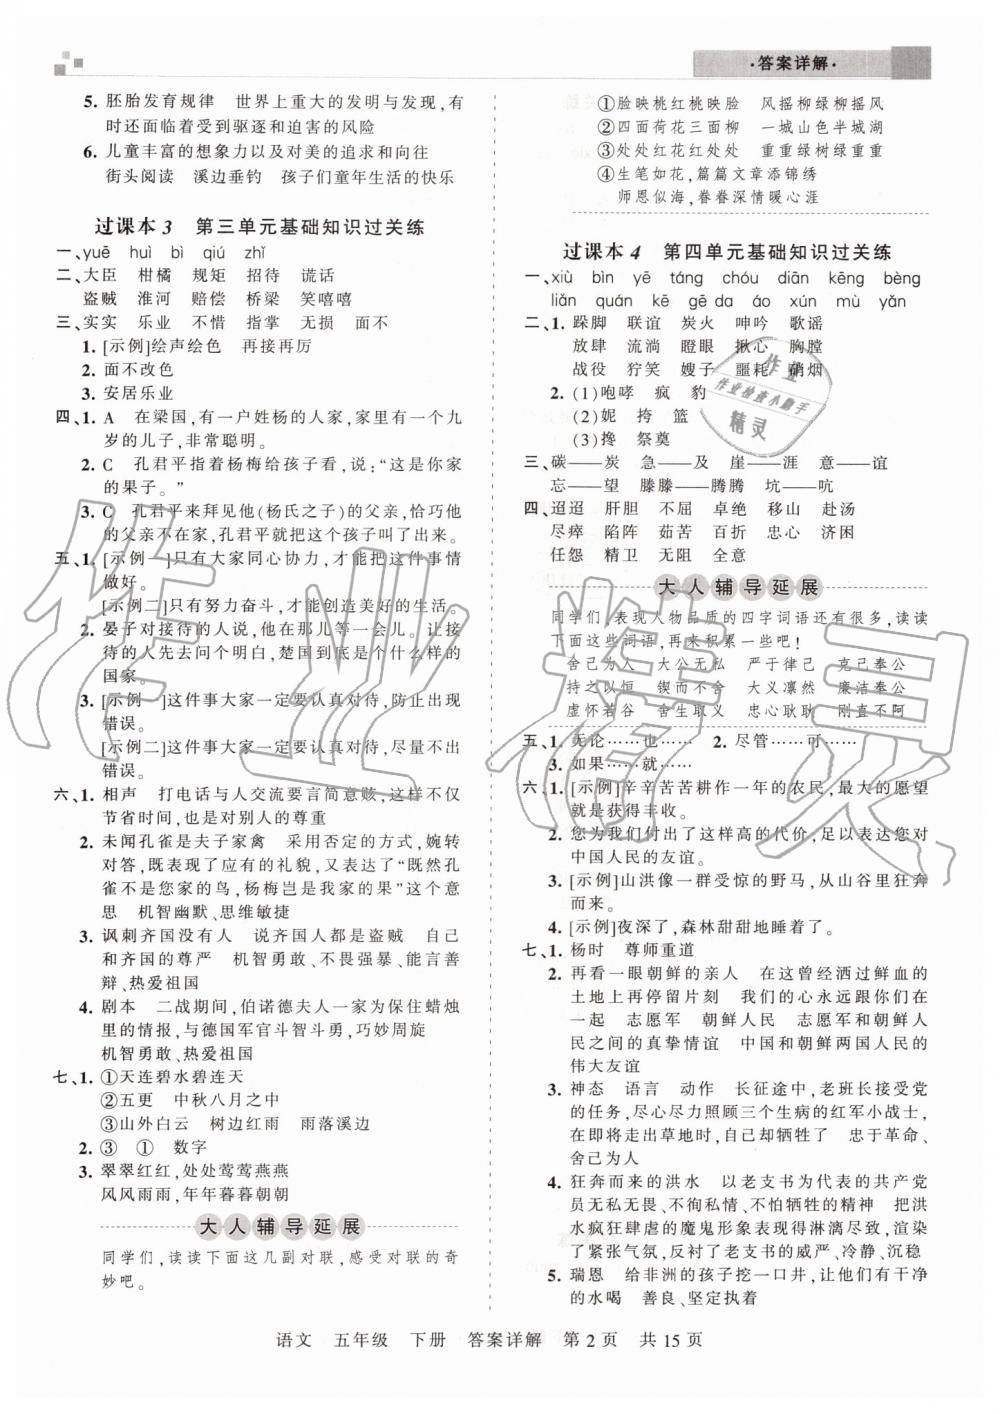 ·答案详解·
5. 胚胎发育规律　世界上重大的发明与发现,有
时还面临着受到驱逐和迫害的风险
6. 儿童丰富的想象力以及对美的追求和向往
街头阅读　溪边垂钓　孩子们童年生活的快乐
过课本 3　第三单元基础知识过关练
一、yuē　huì　bì　qiú　zhǐ
二、大臣　柑橘　规矩　招待　谎话
盗贼　淮河　赔偿　桥梁　笑嘻嘻
三、实实　乐业　不惜　指掌　无损　面不
1. [示例]绘声绘色　再接再厉
2. 面不改色
3. 安居乐业
四、1. A　在梁国,有一户姓杨的人家,家里有一个九
岁的儿子,非常聪明。
2. C　孔君平指着杨梅给孩子看,说:“这是你家
的果子。”
3. C　孔君平来拜见他(杨氏之子)的父亲,恰巧他
的父亲不在家,孔君平就把这个孩子叫了出来。
五、1. [示例一]只有大家同心协力,才能把这件事情
做好。
[示例二]只有努力奋斗,才能创造美好的生活。
2. 晏子对接待的人说,他在那儿等一会儿。让接
待的人先去问一个明白,楚国到底是个什么样的
国家。
3. [示例一]这件事大家一定要认真对待,防止出现
错误。
[示例二]这件事大家一定要认真对待,尽量不出
错误。
六、1. 相声　打电话与人交流要言简意赅,这样不仅
节省时间,也是对别人的尊重
2. 未闻孔雀是夫子家禽　采用否定的方式,婉转
对答,既表现了应有的礼貌,又表达了“既然孔
雀不是您家的鸟,杨梅岂是我家的果”这个意
思　机智幽默、思维敏捷
3. 讽刺齐国没有人　说齐国人都是盗贼　自己
和齐国的尊严　机智勇敢、不畏强暴、能言善
辩、热爱祖国
4. 剧本　二战期间,伯诺德夫人一家为保住蜡烛
里的情报,与德国军官斗智斗勇,巧妙周旋
机智勇敢、热爱祖国
七、1. ①天连碧水碧连天
②五更　中秋八月之中
③山外白云　树边红雨　雨落溪边
2. ③　①　数字
3. 翠翠红红,处处莺莺燕燕
风风雨雨,年年暮暮朝朝
大人辅导延展
同学们,读读下面这几副对联,感受对联的奇
妙吧。
①脸映桃红桃映脸　风摇柳绿柳摇风
②四面荷花三面柳　一城山色半城湖
③处处红花红处处　重重绿树绿重重
④生笔如花,篇篇文章添锦绣
师恩似海,眷眷深情暖心涯
过课本 4　第四单元基础知识过关练
一、xiù　bìn　yē　táng　chóu　diān　kēng　bèng
liǎn　quán　kē　gē da　áo　xún　mù　yǎn
二、1. 跺脚　联谊　炭火　呻吟　歌谣
放肆　流淌　瞪眼　揪心　胸膛
战役　狞笑　嫂子　噩耗　硝烟
2. (1)咆哮　疯　豹
(2)妮　挎　篮
(3)搀　祭奠
三、碳——炭　急——及　崖——涯　意——谊
忘——望　滕滕——腾腾　坑——吭
四、迢迢　肝胆　不屈　卓绝　移山　赴汤
尽瘁　陷阵　茹苦　百折　忠心　济困
任怨　精卫　无阻　全意
大人辅导延展
同学们,表现人物品质的四字词语还有很多,读读
下面这些词语,再来积累一些吧!
舍己为人　大公无私　严于律己　克己奉公
持之以恒　锲而不舍　大义凛然　廉洁奉公
虚怀若谷　舍生取义　忠心耿耿　刚直不阿
五、1. 无论……也……　2. 尽管……可……
3. 如果……就……
六、1. [示例]辛辛苦苦耕作一年的农民,最大的愿望
就是获得丰收。
2. 您为我们付出了这样高的代价,足以表达您对
中国人民的友谊。
3. [示例]山洪像一群受惊的野马,从山谷里狂奔
而来。
4. [示例]夜深了,森林甜甜地睡着了。
七、1. 杨时　尊师重道
2. 再看一眼朝鲜的亲人　在这曾经洒过鲜血的
土地上再停留片刻　我们的心永远跟你们在
一起　志愿军　朝鲜人民　志愿军和朝鲜人
民之间的真挚情谊　中国和朝鲜两国人民的
伟大友谊
3. 神态　语言　动作　长征途中,老班长接受党
的任务,尽心尽力照顾三个生病的红军小战士,
在即将走出草地时,自己却牺牲了　忠于革命、
舍己为人
4. 狂奔而来的洪水　以老支书为代表的共产党
员无私无畏、不徇私情、不怕牺牲的精神　把洪
水疯狂肆虐的魔鬼形象表现得淋漓尽致,渲染
了紧张气氛,反衬了老支书的威严、冷静、沉稳
5. 瑞恩　给非洲的孩子挖一口井,让他们有干净
的水喝　善良、坚定执着
语文　五年级　下册　答案详解　第 2 页　共 15 页
作业精灵
作业
作业检查小助手
精灵